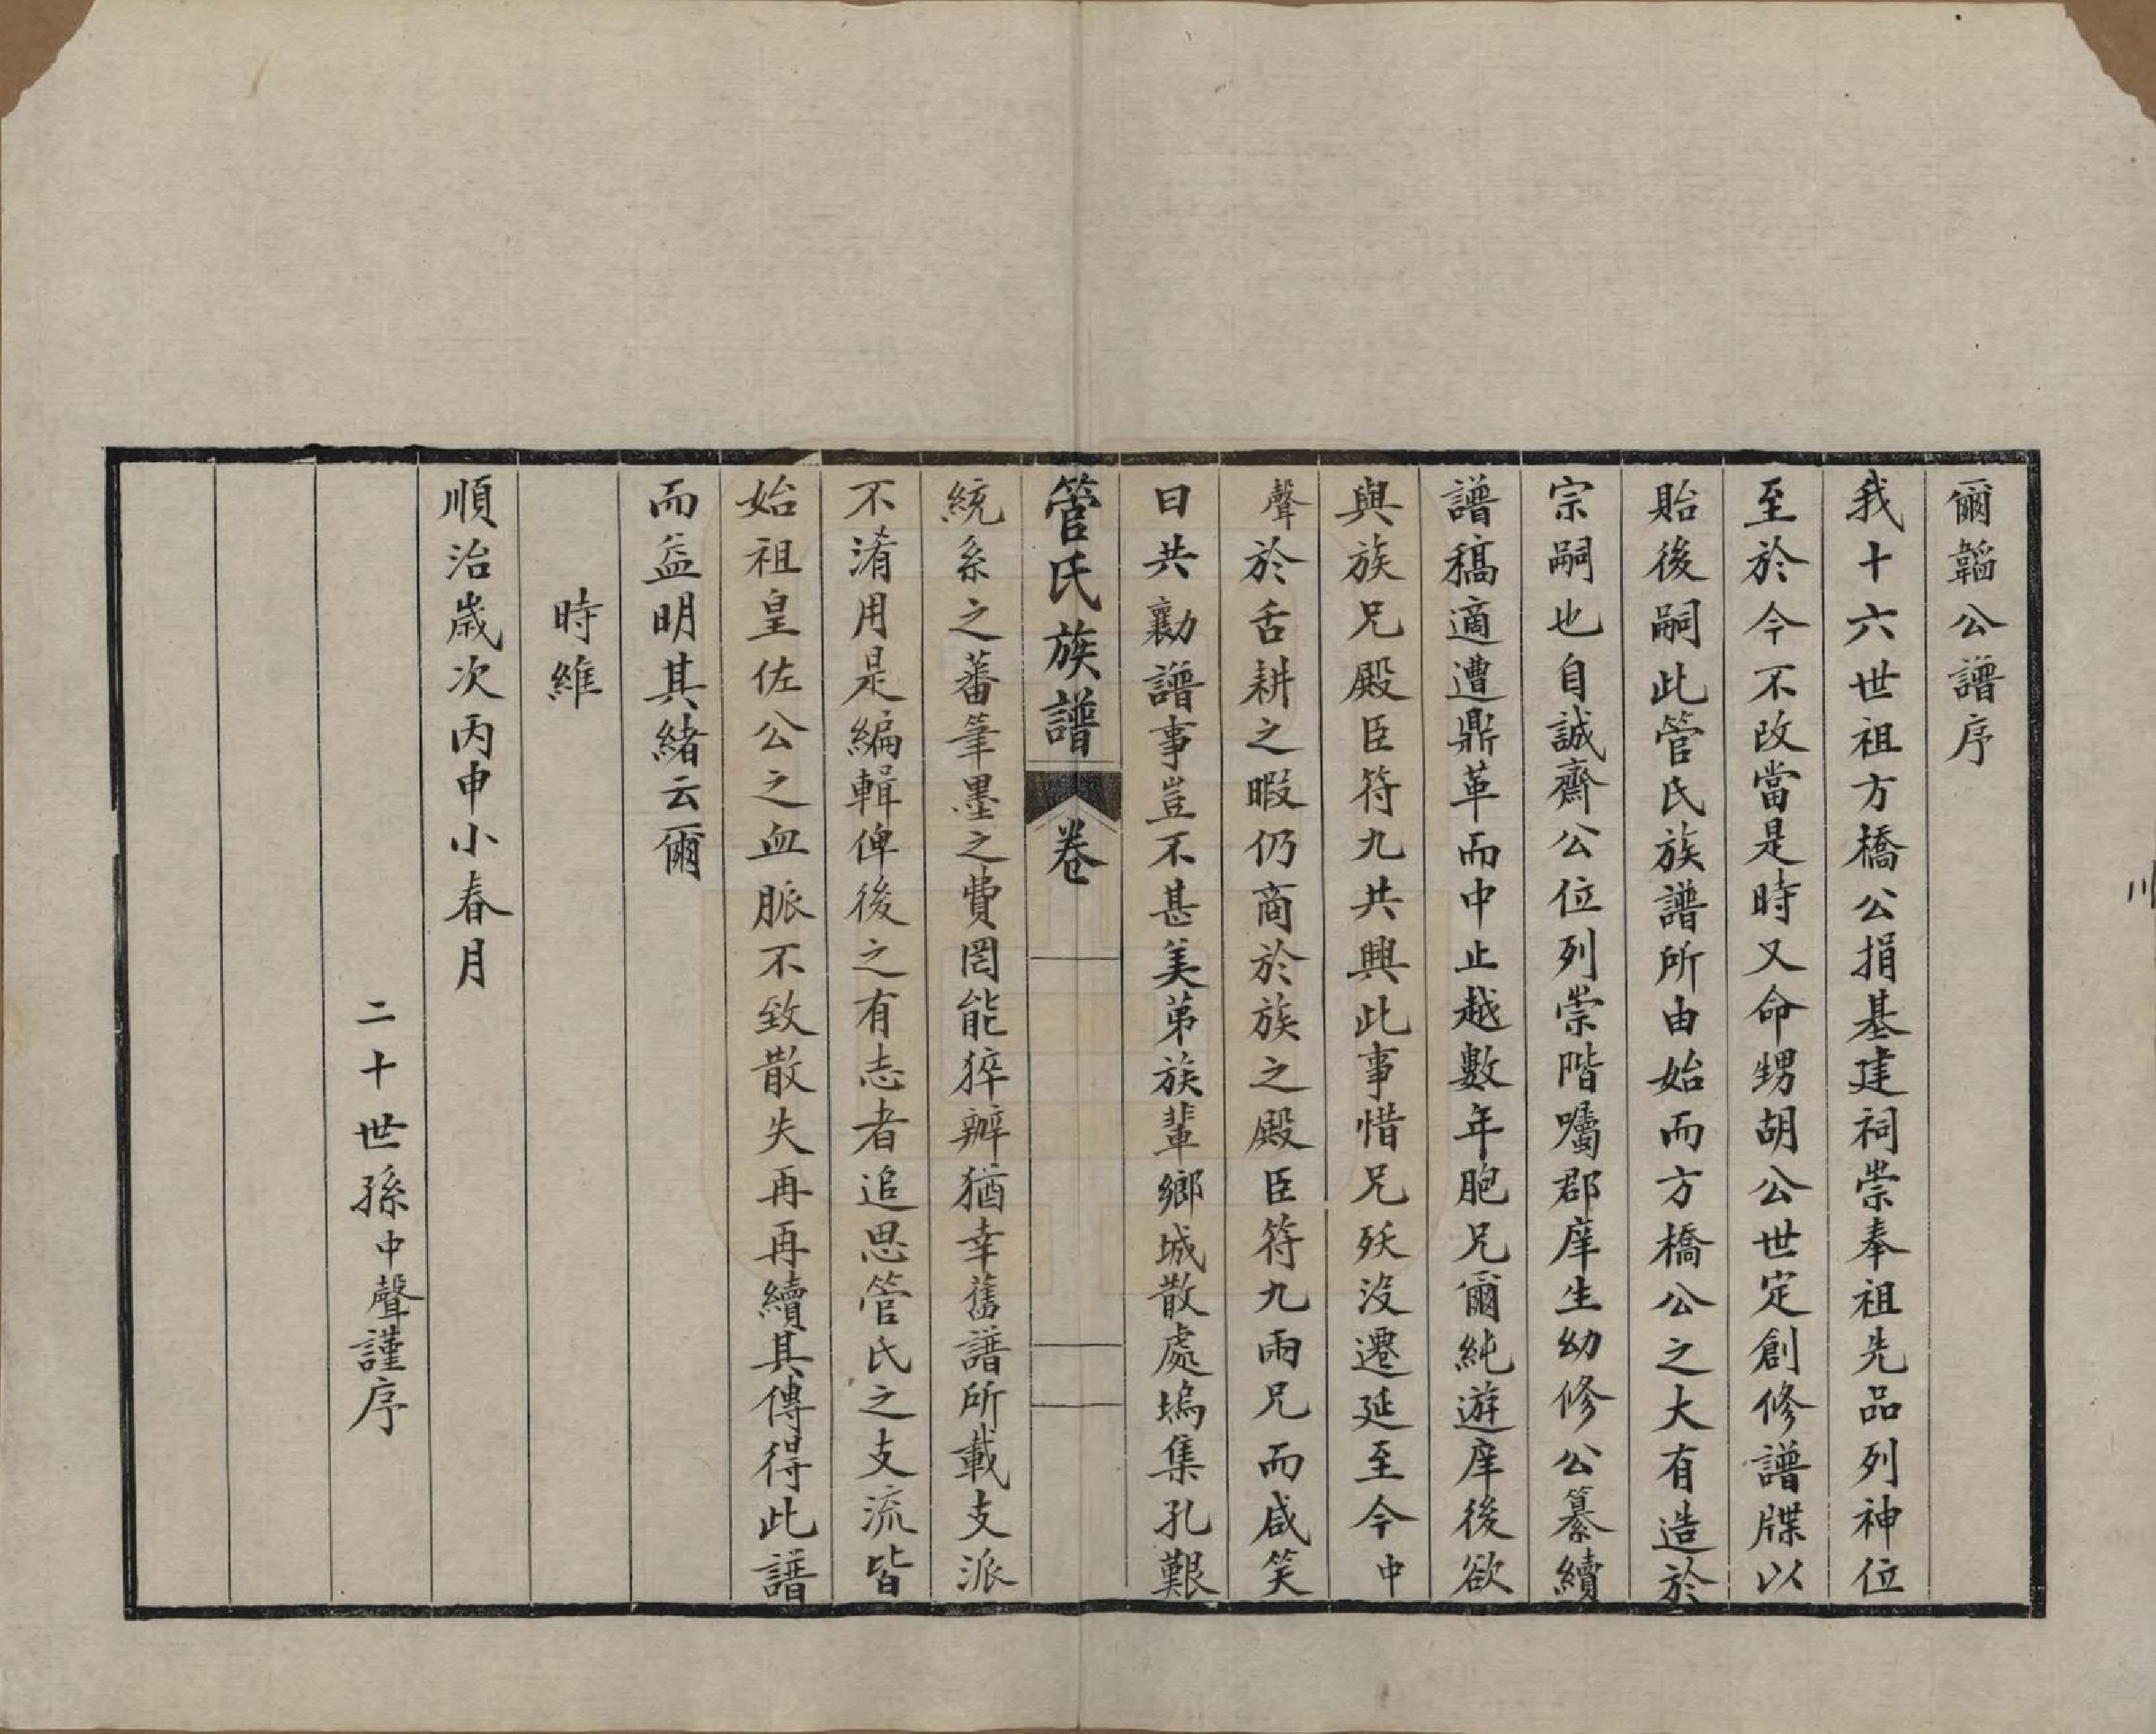 爾韜公譜序
我十六世祖方橋公捐基建祠崇奉祖先品列神位
至於今不改當是時又命甥胡公世定創修譜牒以
貽後嗣此管氏族譜所由始而方橋公之大有造於
宗嗣也自誠齋公位列崇階囑郡庠生幼修公纂續
譜稿適遭鼎革而中止越數年胞兄爾純遊庠後欲
與族兄殿臣符九共興此事惜兄殀沒遷延至今中
聲於舌耕之暇仍商於族之殿臣符九兩兄而咸笑
曰共勷譜事豈不甚美第族輩鄉城散處塢集孔艱
管氏族譜 卷
統系之蕃筆墨之費罔能猝辦猶幸舊譜所載支派
不淆用是編輯俾後之有志者追思管氏之支流皆
始祖皇佐公之血脈不致散失再再續其傳得此譜
而益明其緒云爾
時維
順治歲次丙申小春月
二十世孫中聲謹序